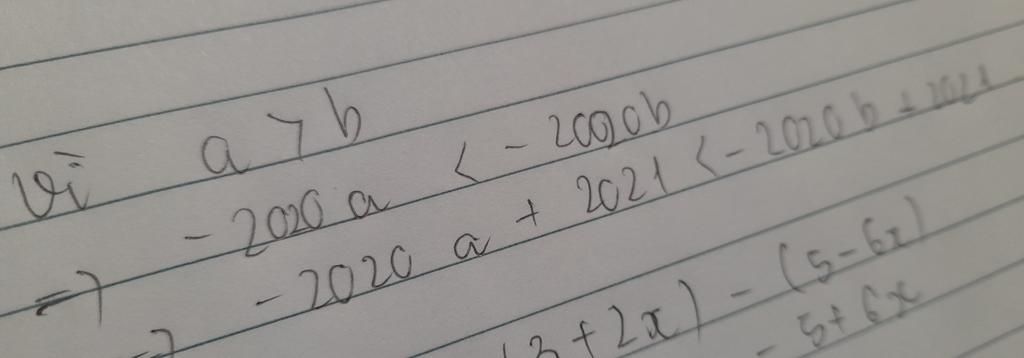 Vì a > b
=> - 2020 a < - 2020b
=> - 2020 a + 2021 < - 2020 b + 2021
(3 + 2x) - (5 - 6x)
- 5 + 6x